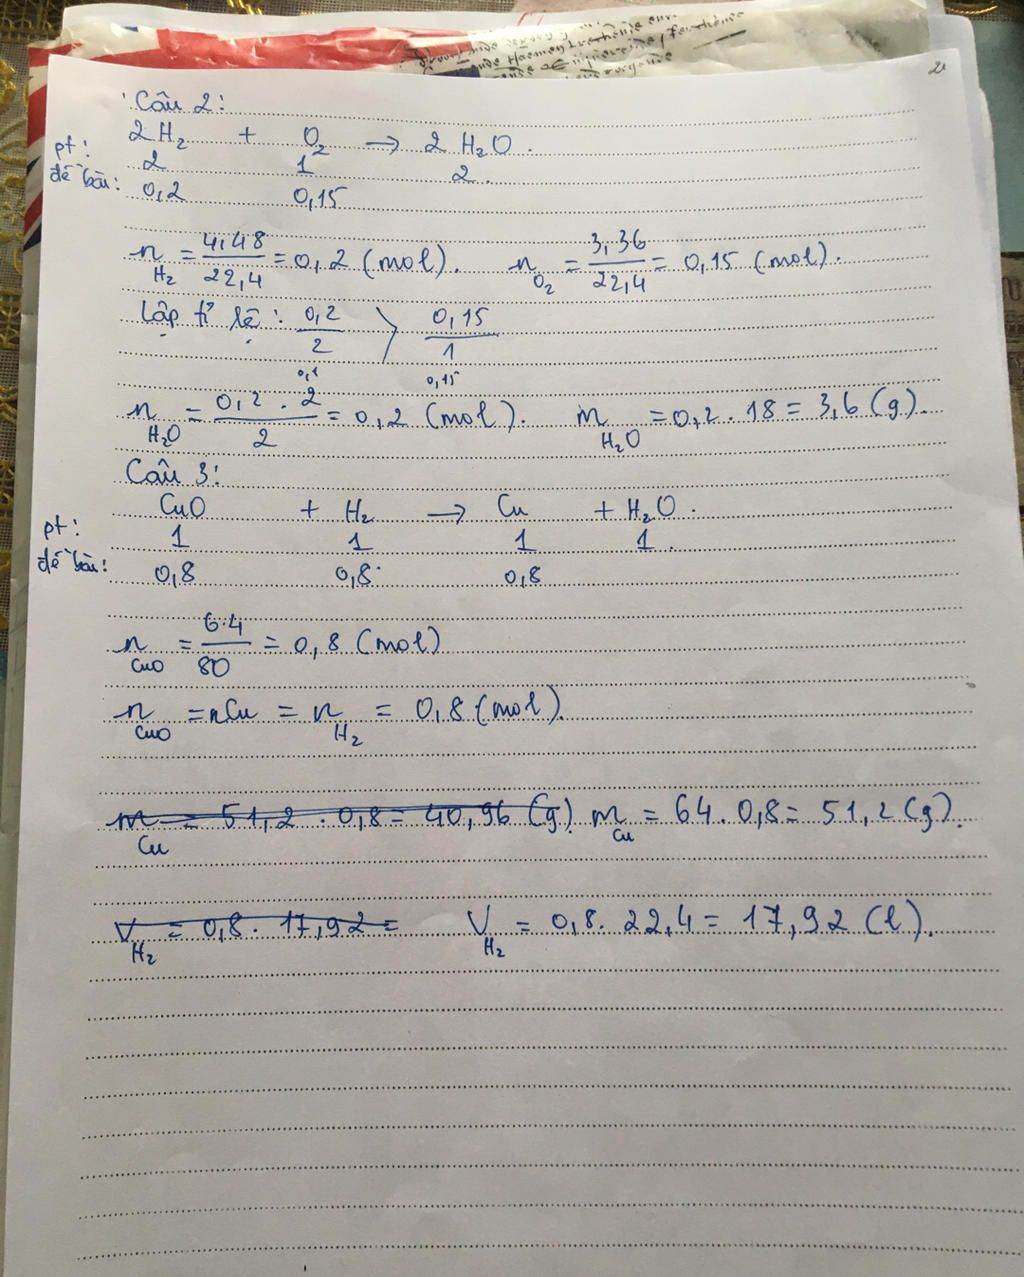 Câu 2:
pt: 2H₂ + O₂ → 2 H₂O.
2 1 2
đề bài: 0,2 0,15
n H₂ = 4,48/22,4 = 0,2 (mol). n O₂ = 3,36/22,4 = 0,15 (mol).
Lập tỉ lệ: 0,2/2 > 0,15/1
0,1 0,15
n H₂O = 0,2 . 2/2 = 0,2 (mol). m H₂O = 0,2 . 18 = 3,6 (g).
Câu 3:
pt: CuO + H₂ → Cu + H₂O.
1 1 1 1.
đề bài: 0,8 0,8 0,8
n CuO = 6.4/80 = 0,8 (mol)
n CuO = nCu = n H₂ = 0,8 (mol).
m Cu = 51,2 . 0,8 = 40,96 (g) m Cu = 64 . 0,8 = 51,2 (g).
V H₂ = 0,8 . 17,92 = V H₂ = 0,8 . 22,4 = 17,92 (l).